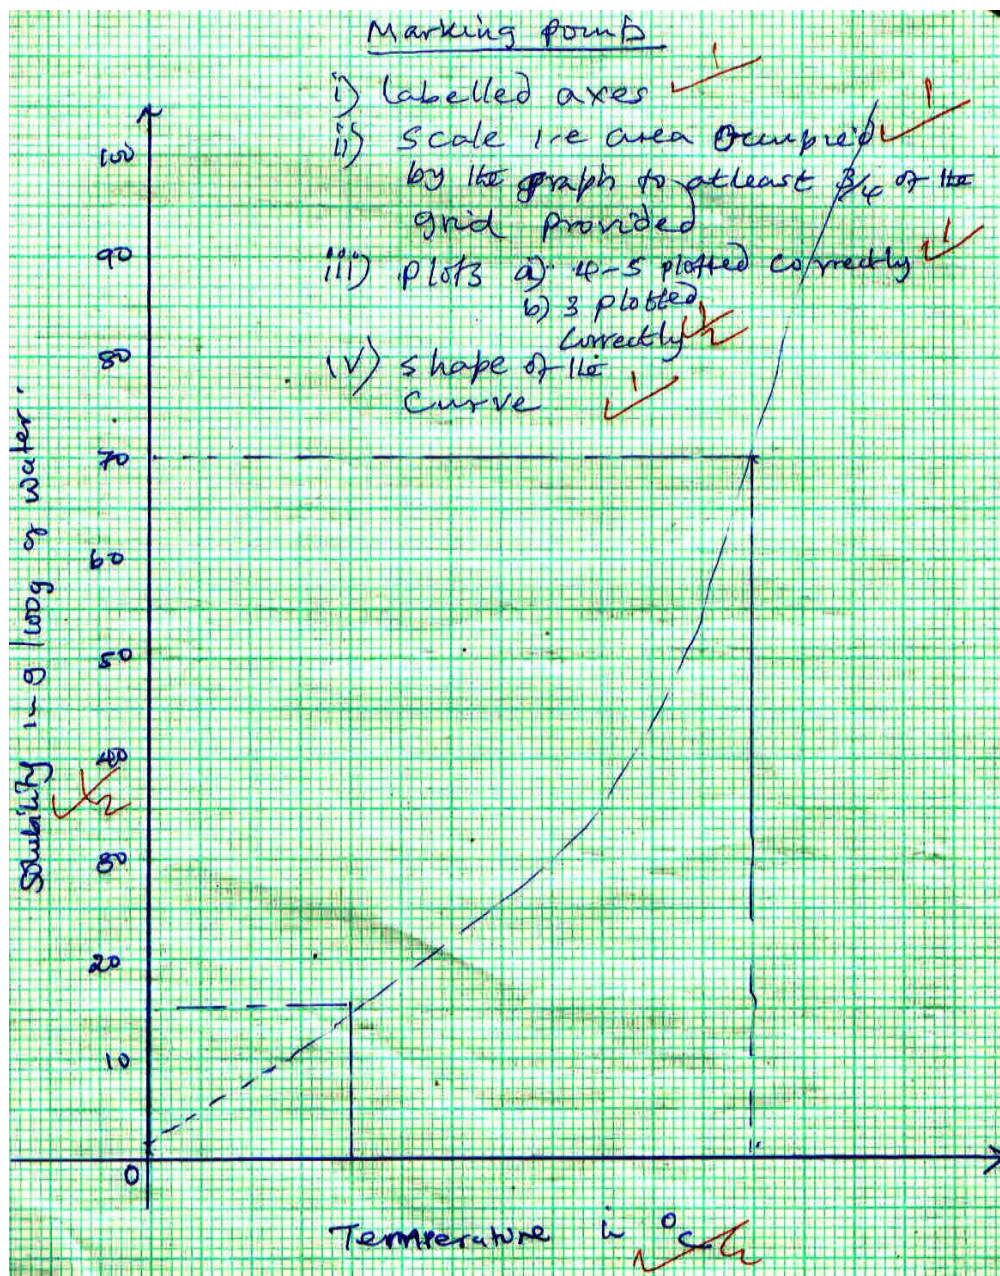 Marking points
i) Labelled axes ✓ 1
ii) Scale i.e area occupied ✓ 1
by the graph to atleast 3/4 of the
grid provided
iii) Plots a) 4-5 plotted correctly ✓ 1
b) 3 plotted
Correctly ✓ 1/2
(V) Shape of the
Curve ✓ 1
100
90
80
70
60
50
40
30
20
10
0
Solubility in g/100g of water. ✓ 1/2
Temperature in °C ✓ 1/2